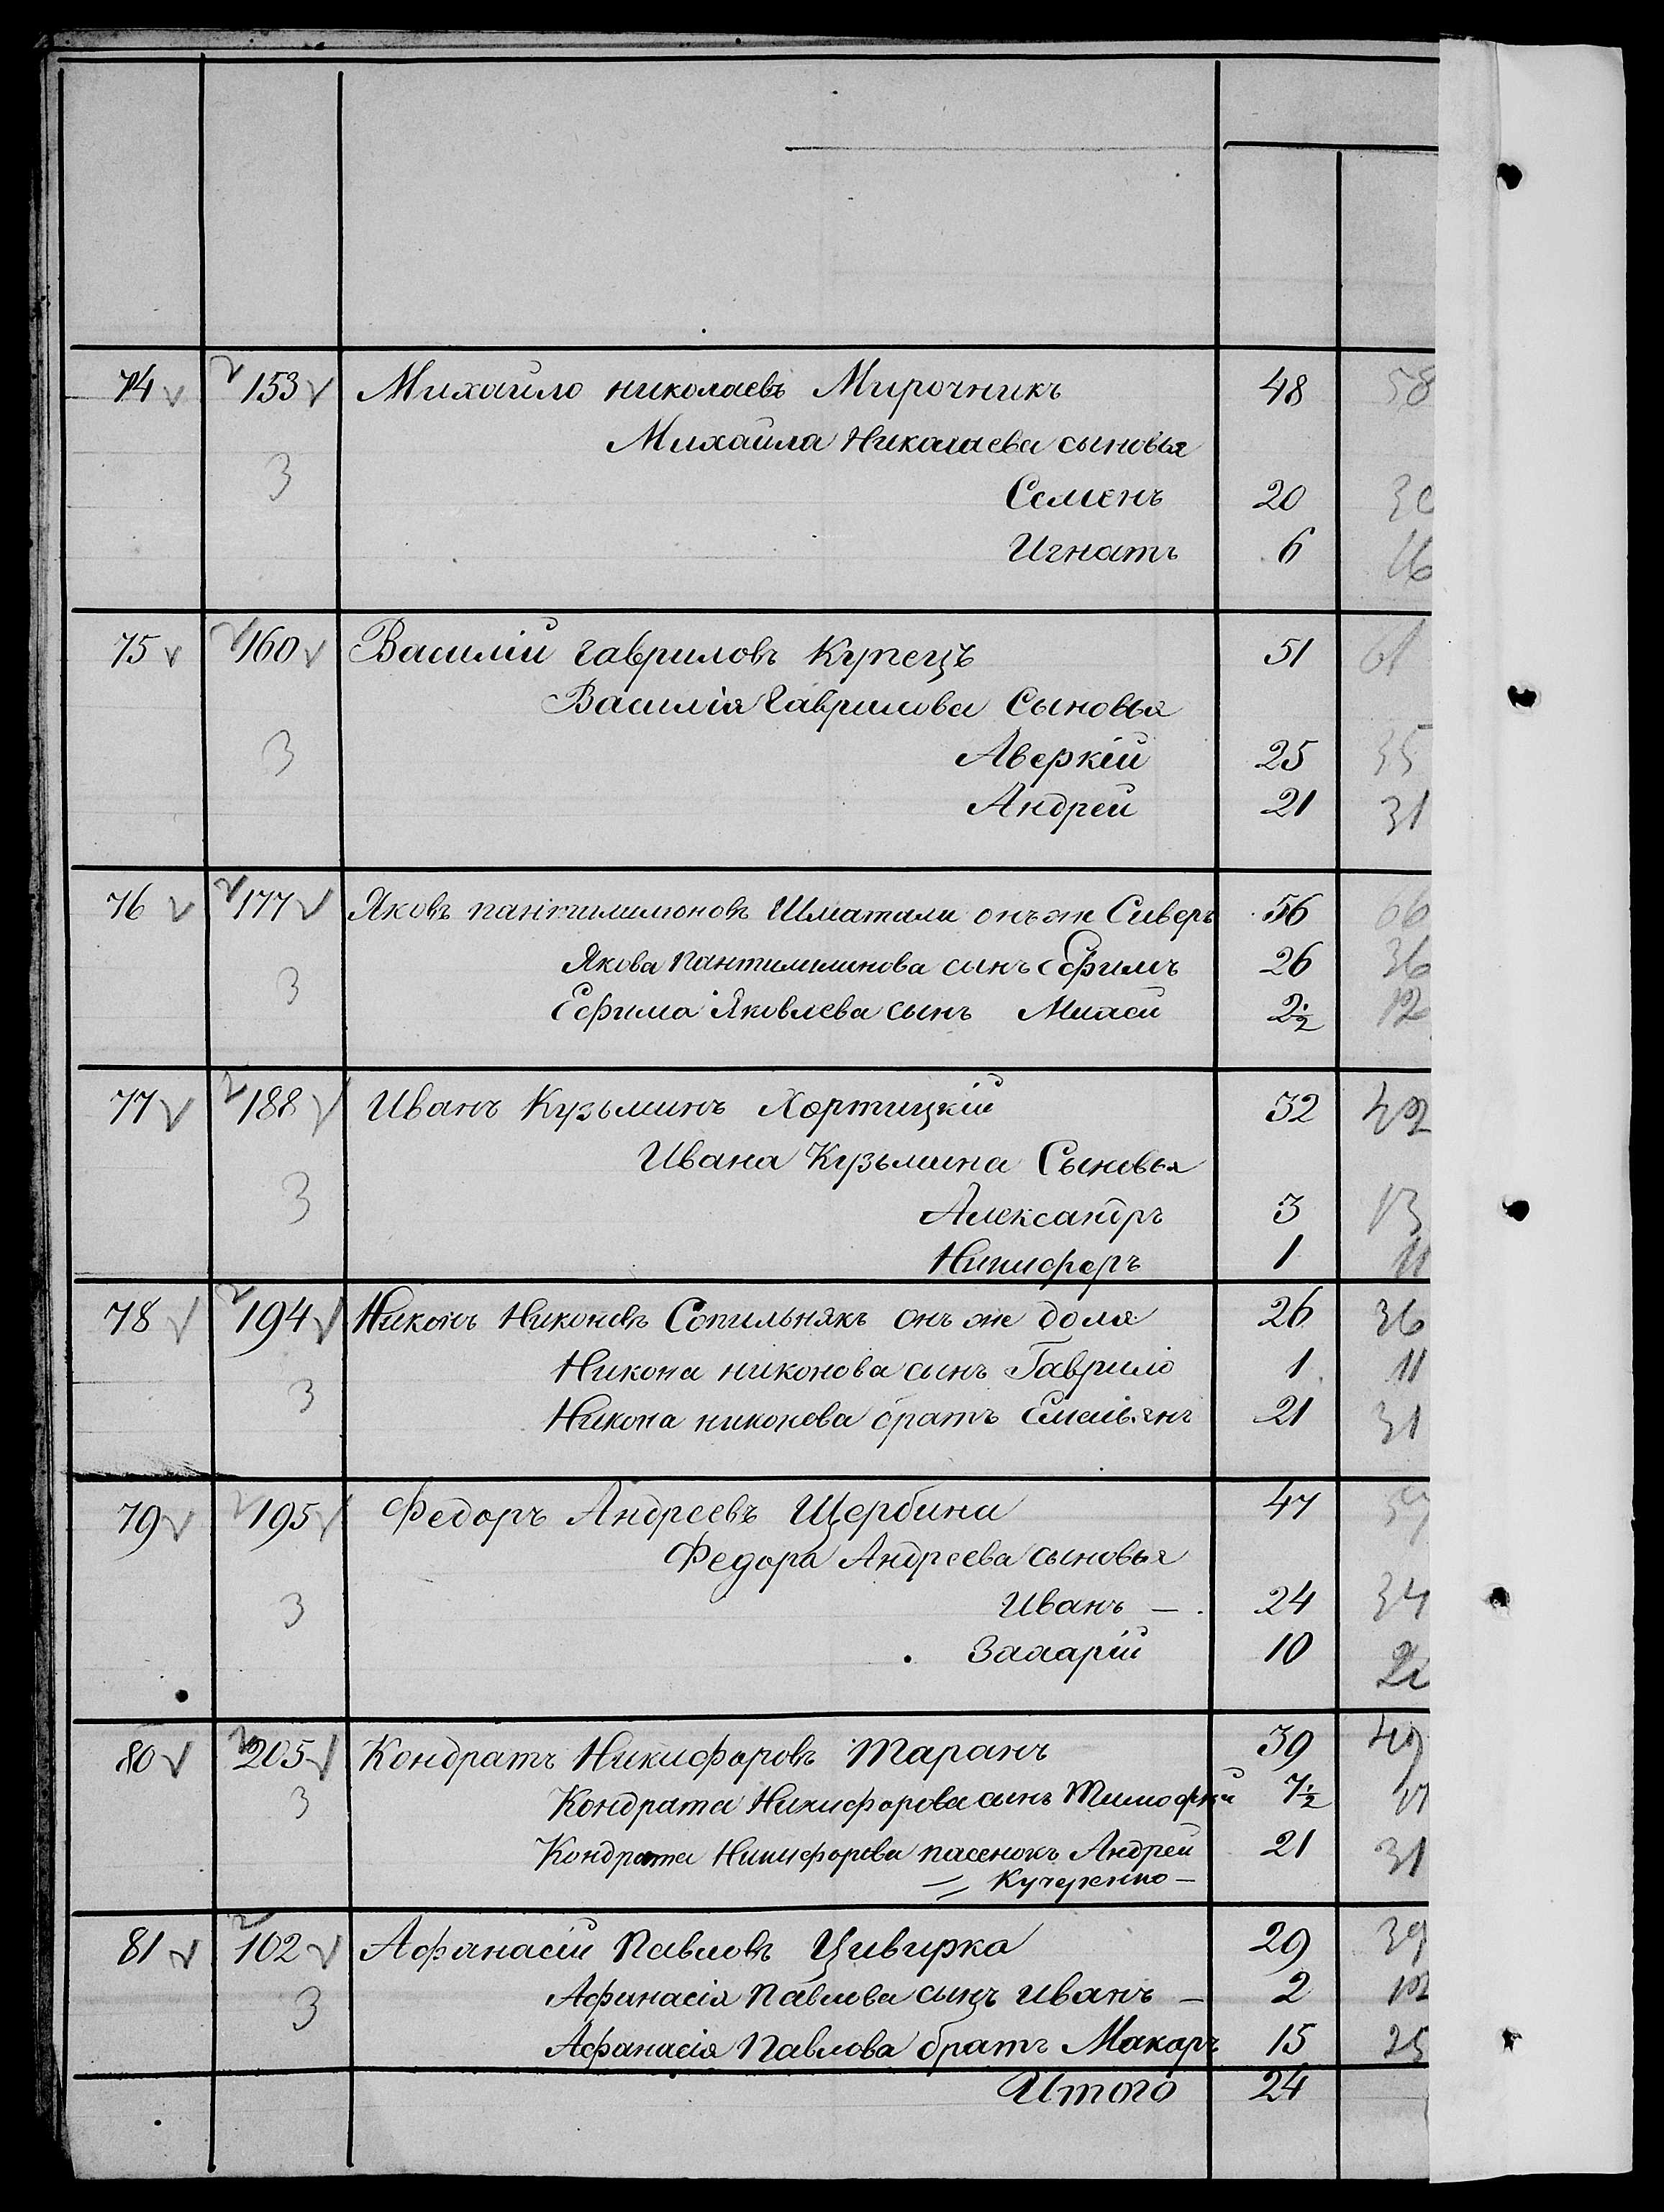 74 v v 153 v Михайло николаевъ Мирочникъ 48 58
Михайла Николаева сыновья
3 Семенъ 20 30
Игнатъ 6 16
75 v v 160 v Василій гавриловъ Купецъ 51 61
Василія Гаврилова Сыновья
3 Аверкій 25 35
Андрей 21 31
76 v v 177 v Яковъ пантилимоновъ Шматали онъ же Сиверъ 56 66
3 Якова Пантилимонова сынъ Ефимъ 26 36
Ефима Яковлева сынъ Михей 2½ 12
77 v v 188 v Иванъ Кузьминъ Хортицкій 32 42
Ивана Кузьмина Сыновья
3 Александръ 3 13
Никифоръ 1 11
78 v v 194 v Никонъ Никоновъ Сопильнякъ онъ же доля 26 36
Никона никонова сынъ Гаврило 1 11
3 Никона никонова братъ Емельянъ 21 31
79 v v 195 v Федоръ Андреевъ Щербина 47 57
Федора Андреева сыновья
3 Иванъ — 24 34
Захарій 10 2
80 v v 205 v Кондратъ Никифоровъ Таранъ 39 49
3 Кондрата Никифорова сынъ Тимофей 7½ 17
Кондрата Никифорова пасенокъ Андрей 21 31
= Кучеренко —
81 v v 102 v Афанасій Павловъ Цивирка 29 39
3 Афанасія Павлова сынъ Иванъ — 2 12
Афанасія Павлова братъ Макаръ 15 25
Итого 24